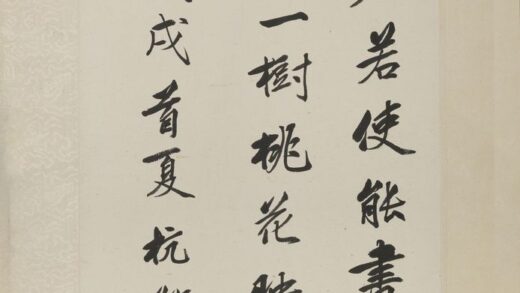 若使能書
一樹桃花映
戌首夏杭